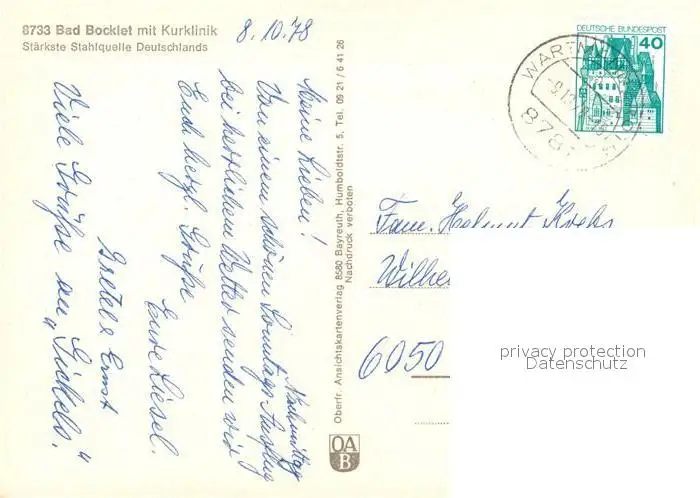 8733 Bad Bocklet mit Kurklinik
Stärkste Stahlquelle Deutschlands
8.10.78
Meine Lieben!
Von einem schönen Sonntag-Nachmittag-Ausflug
bei herrlichem Wetter senden wir
Euch herzl. Grüße
Eure Liesel.
Gretel & Ernst
Viele Grüße an "Gickels."
Oberfr. Ansichtskartenverlag 8580 Bayreuth, Humboldtstr. 5, Tel. 09 21 / 6 41 26
Nachdruck verboten
OA
B
DEUTSCHE BUNDESPOST
40
WARTM
8781
Fam. Helmut Krebs
Wilhe
6050
privacy protection
Datenschutz